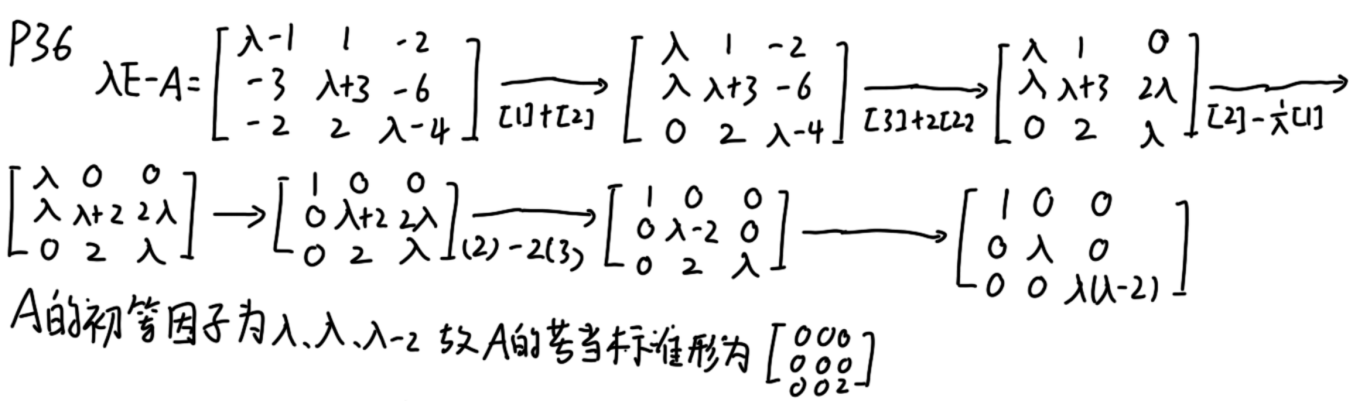 P36 λE-A= [ λ-1 1 -2 ; -3 λ+3 -6 ; -2 2 λ-4 ] →[1]+[2] [ λ 1 -2 ; λ λ+3 -6 ; 0 2 λ-4 ] →[3]+2[2] [ λ 1 0 ; λ λ+3 2λ ; 0 2 λ ] →[2]-1/λ[1]
[ λ 0 0 ; λ λ+2 2λ ; 0 2 λ ] → [ 1 0 0 ; 0 λ+2 2λ ; 0 2 λ ] →(2)-2(3) [ 1 0 0 ; 0 λ-2 0 ; 0 2 λ ] → [ 1 0 0 ; 0 λ 0 ; 0 0 λ(λ-2) ]
A的初等因子为λ、λ、λ-2 故A的若当标准形为 [ 0 0 0 ; 0 0 0 ; 0 0 2 ]